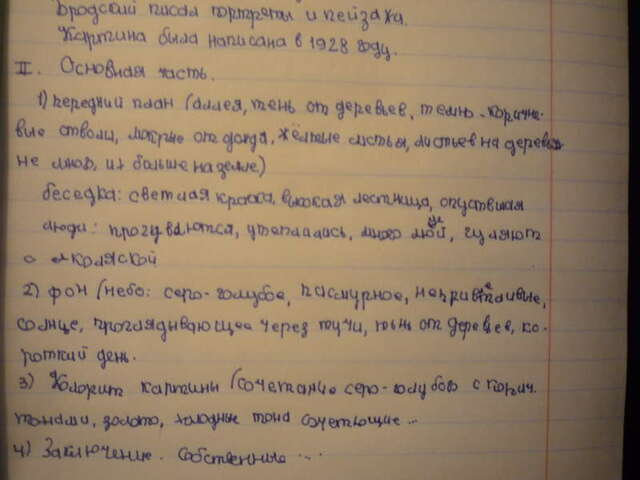 Бродский писал портреты и пейзажа.
Картина была написана в 1928 году.
II. Основная часть.
1) передний план (аллея, тень от деревьев, темно-коричне-
вые стволы, мокрые от дождя, жёлтые листья, листьев на деревьях
не много, их больше на земле)
беседка: светлая краска, высокая лестница, опустевшая
люди: прогуливаются, утеплились, много людей, гуляют
с коляской
2) фон (небо: серо-голубое, пасмурное, неприветливые,
солнце, проглядывающее через тучи, тень от деревьев, ко-
роткий день.
3) Колорит картины (сочетание серо-голубого с корич.
тонами, золото, холодные тона сочетающие...
4) Заключение. Собственние ...